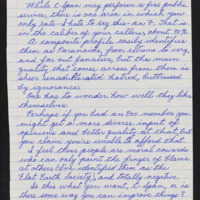 While C-Span may perform a fine public
service, there is one area in which you
only rate - I hate to say this - an F. That is
in the calibre of your callers, about 90%.
A composite profile easily identifies
them as Paranoids, from extreme to very,
and far out fanatics, but the main
quality that comes across from them is
sheer unadulterated hatred, buttressed
by ignorance.
One has to wonder how well they like
themselves.
Perhaps if you had an 800-number you
might get a more diverse input of
opinions and better quality at that, but
you claim you're unable to afford that.
I feel these people are moral cowards
who can only point the finger of blame
at others. I've identified them as the
Flat Earth Society and totally negative.
Is this what you want, C-Span, or is
there some way you can improve things?